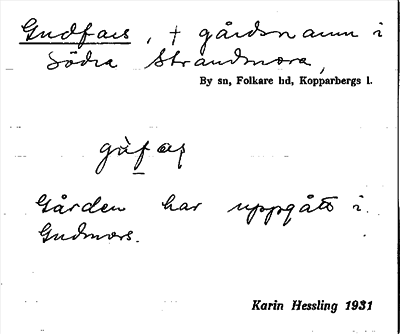 Gudfars, † gårdsnamn i
Södra Strandmora,
By sn, Folkare hd, Kopparbergs l.
gùfaș
Gården har uppgått i
Gudmars.
Karin Hessling 1931